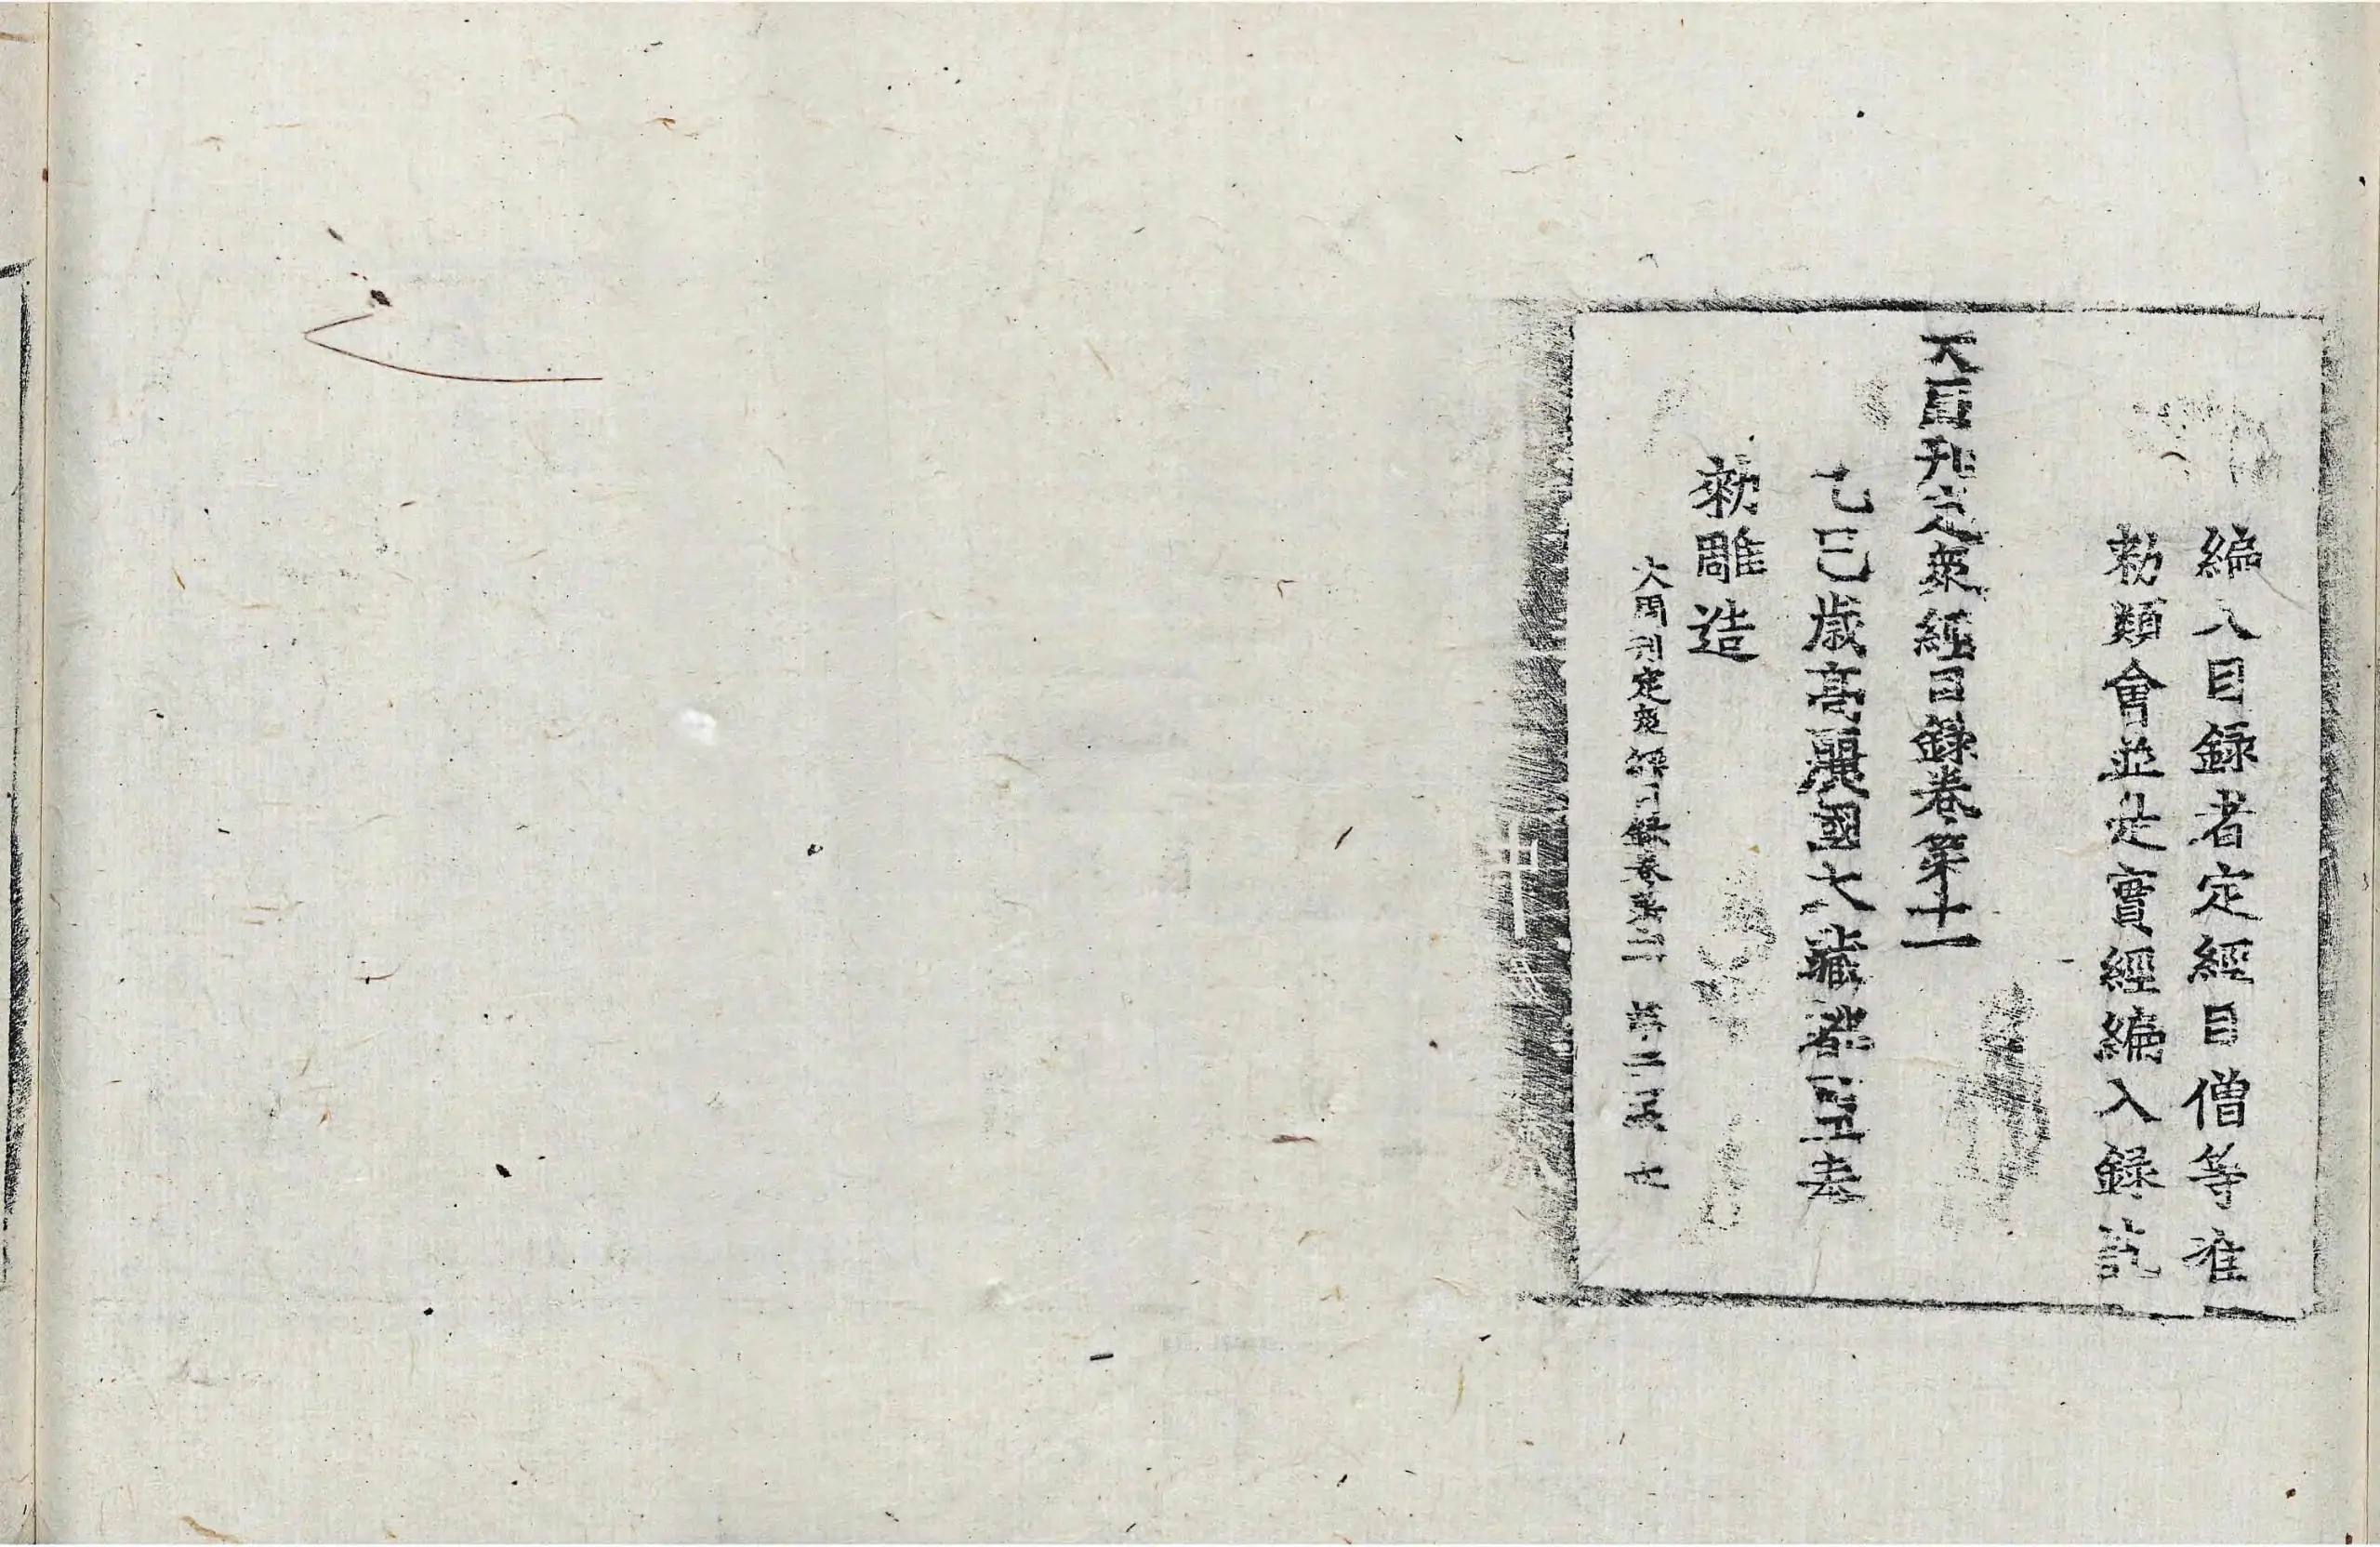 編入目録者定經目僧等准
勅類會並是實經編入録訖
大周刊定衆經目錄卷第十一
乙巳歳高麗國大藏都監奉
勅雕造
大周刊定衆經目録卷第十一 第二十張 亡